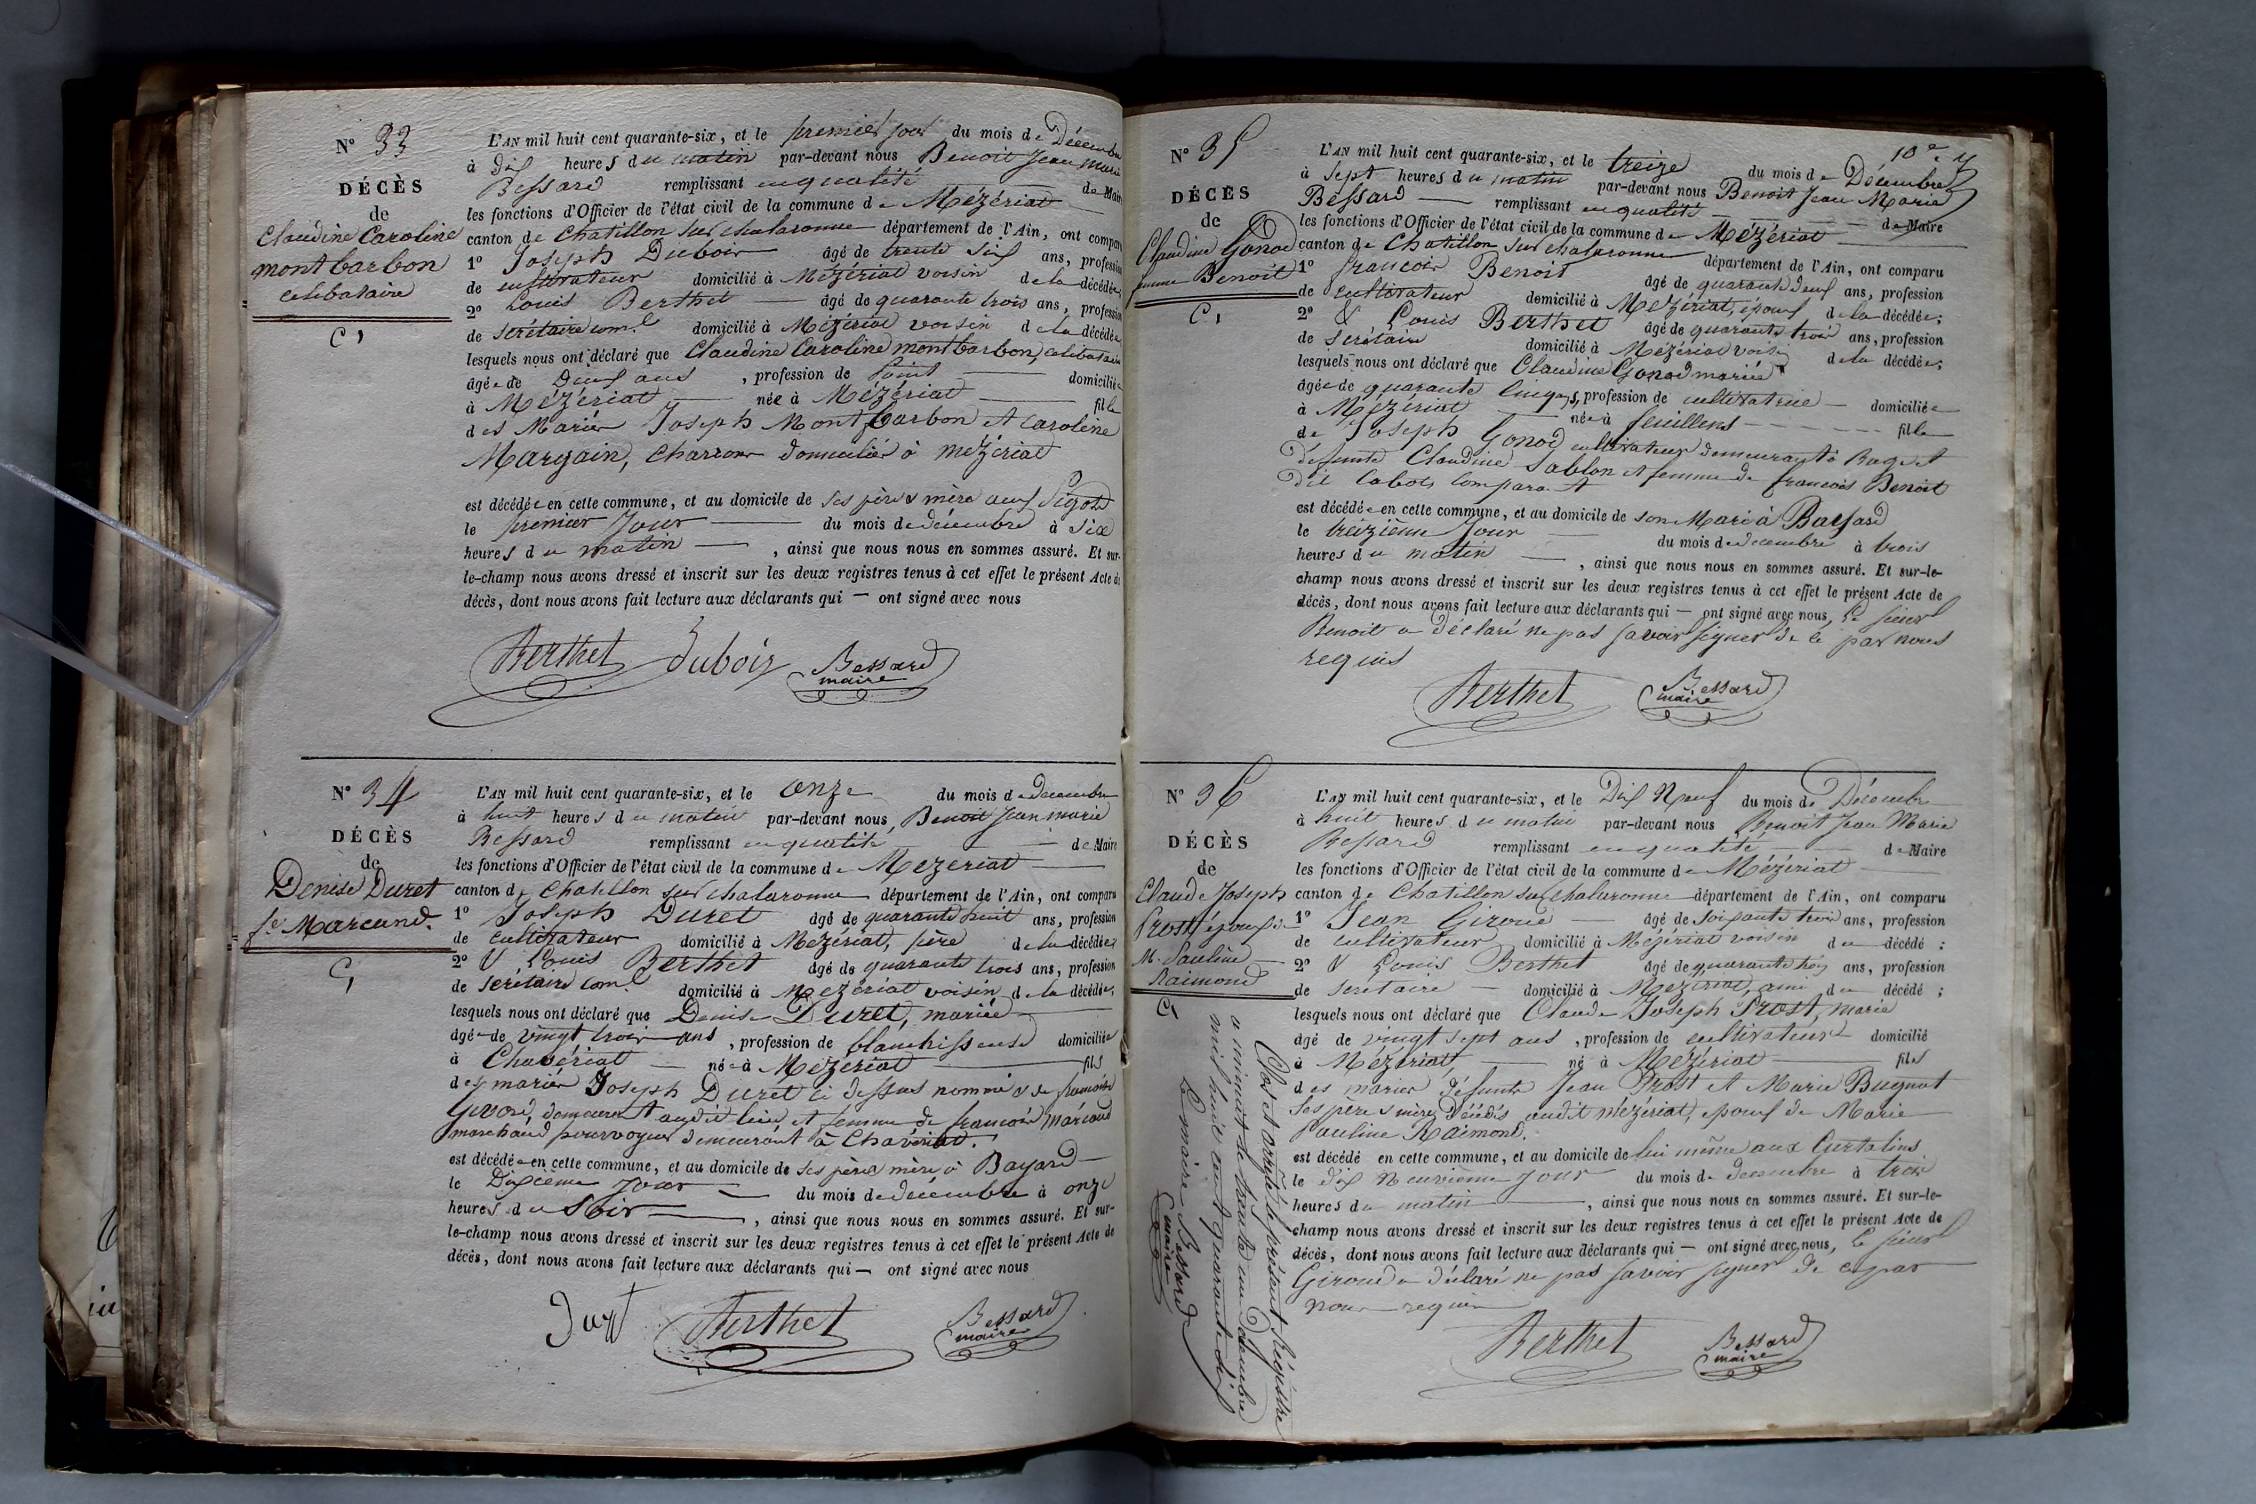 N° 33
DÉCÈS
de
Claudine Caroline
montbarbon
celibataire
C,
L'AN mil huit cent quarante-six, et le premier jour du mois de Décembre
à dix heures du matin par-devant nous Benoit Jean Marie
Bessard remplissant en qualité de Maire
les fonctions d'Officier de l'état civil de la commune de Mézériat
canton de Chatillon sur chalaronne département de l'Ain, ont comparu
1° Joseph Dubois âgé de trente six ans, profession
de cultivateur domicilié à Mézériat voisin de la décédée
2° Louis Berthet âgé de quarante trois ans, profession
de secrétaire com.l domicilié à Mézériat voisin de la décédée
lesquels nous ont déclaré que Claudine Caroline montbarbon, celibataire
âgée de Deux ans, profession de domiciliée
à Mézériat née à Mézériat fille
des Mariés Joseph Montbarbon et Caroline
Margain, charron domiciliés à mézériat
est décédée en cette commune, et au domicile de ses père & mère aux
le premier Jour du mois de décembre à six
heures du matin, ainsi que nous nous en sommes assuré. Et sur-
le-champ nous avons dressé et inscrit sur les deux registres tenus à cet effet le présent Acte de
décès, dont nous avons fait lecture aux déclarants qui — ont signé avec nous
Berthet Dubois Bessard
maire
N° 34
DÉCÈS
de
Denise Duret
fe Marcand
C,
L'AN mil huit cent quarante-six, et le onze du mois de décembre
à huit heures du matin par-devant nous, Benoit Jean marie
Bessard remplissant en qualité de Maire
les fonctions d'Officier de l'état civil de la commune de Mezeriat
canton de Chatillon sur chalaronne département de l'Ain, ont comparu
1° Joseph Duret âgé de quarante huit ans, profession
de cultivateur domicilié à Mezériat, père de la décédée
2° & Louis Berthet âgé de quarante trois ans, profession
de secrétaire com.l domicilié à Mezériat voisin de la décédée;
lesquels nous ont déclaré que Denise Duret, mariée
âgée de vingt trois ans, profession de blanchisseuse domiciliée
à Chavériat née à Mézériat fils
des mariés Joseph Duret ci dessus nommé & de
demeurant audit lieu et femme de francois Marcand
marchand pourvoyeur demeurant à Chavériat.
est décédée en cette commune, et au domicile de ses père & mère à Bayard
le Dixième Jour du mois de décembre à onze
heures du Soir, ainsi que nous nous en sommes assuré. Et sur-
le-champ nous avons dressé et inscrit sur les deux registres tenus à cet effet le présent Acte de
décès, dont nous avons fait lecture aux déclarants qui — ont signé avec nous
Berthet Bessard
maire
N° 35
DÉCÈS
de
Claudine Gonod
femme Benoit
C,
L'AN mil huit cent quarante-six, et le treize du mois de Décembre
à Sept heures du matin par-devant nous Benoit Jean Marie
Bessard remplissant en qualité de Maire
les fonctions d'Officier de l'état civil de la commune de Mézériat
canton de Chatillon sur chalaronne département de l'Ain, ont comparu
1° francois Benoit âgé de quarante deux ans, profession
de cultivateur domicilié à Mezériat, époux de la décédée;
2° & Louis Berthet âgé de quarante trois ans, profession
de secrétaire domicilié à Mézériat voisin de la décédée;
lesquels nous ont déclaré que Claudine Gonod mariée
âgée de quarante cinq ans, profession de cultivatrice domiciliée
à Mézériat née à feuillens fille
de Joseph Gonod cultivateur demeurant à Bagé et
défunte Claudine Sablon et femme de francois Benoit
dit
est décédée en cette commune, et au domicile de son Mari à Bayard
le treizième Jour du mois de decembre à trois
heures du matin, ainsi que nous nous en sommes assuré. Et sur-le-
champ nous avons dressé et inscrit sur les deux registres tenus à cet effet le présent Acte de
décès, dont nous avons fait lecture aux déclarants qui — ont signé avec nous, Le sieur
Benoit a déclaré ne pas savoir signer de ce par nous
requis
Berthet Bessard
maire
N° 36
DÉCÈS
de
Claude Joseph
Prost époux de
M. Pauline
Raimond
C,
L'AN mil huit cent quarante-six, et le Dix Neuf du mois de Décembre
à huit heures du matin par-devant nous Benoit Jean Marie
Bessard remplissant en qualité de Maire
les fonctions d'Officier de l'état civil de la commune de Mézériat
canton de Chatillon sur chalaronne département de l'Ain, ont comparu
1° Jean Giroud âgé de soixante trois ans, profession
de cultivateur domicilié à Mézériat voisin du décédé :
2° & Louis Berthet âgé de quarante trois ans, profession
de secretaire domicilié à Mezériat, ami du décédé ;
lesquels nous ont déclaré que Claude Joseph Prost, marié
âgé de vingt sept ans, profession de cultivateur domicilié
à Mézériat, né à Mezériat fils
des mariés défunts Jean Prost et Marie Bugnot
ses père & mère décédés audit mézériat, epoux de Marie
Pauline Raimond.
est décédé en cette commune, et au domicile de lui même aux Curtelins
le dix Neuvième jour du mois de decembre à trois
heures du matin, ainsi que nous nous en sommes assuré. Et sur-le-
champ nous avons dressé et inscrit sur les deux registres tenus à cet effet le présent Acte de
décès, dont nous avons fait lecture aux déclarants qui — ont signé avec nous, le sieur
Giroud a déclaré ne pas savoir signer de ce par
nous requis
Berthet Bessard
maire
Clos et arrêté le présent Régistre
a minuit le trente un Décembre
mil huit cent quarante six
Le maire Bessard
maire